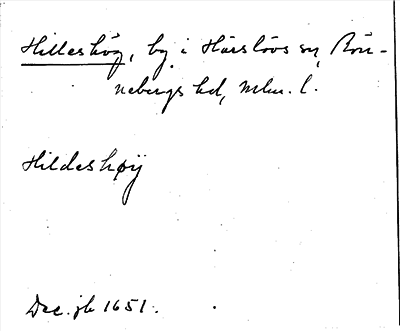 Hilleshög, by i Härslövs sn, Rön-
nebergs hd, Mlm. l.
Hildeshøÿ
Dec. jb 1651.